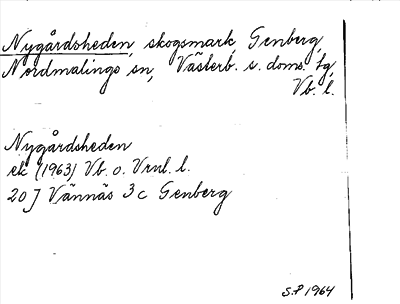 Nygårdsheden, skogsmark, Genberg,
Nordmalings sn, Västerb. s. doms. tg,
Vb. l.
Nygårdsheden
ek (1963) Vb. o. Vrml. l.
20 J Vännäs 3 c Genberg
S.P 1964